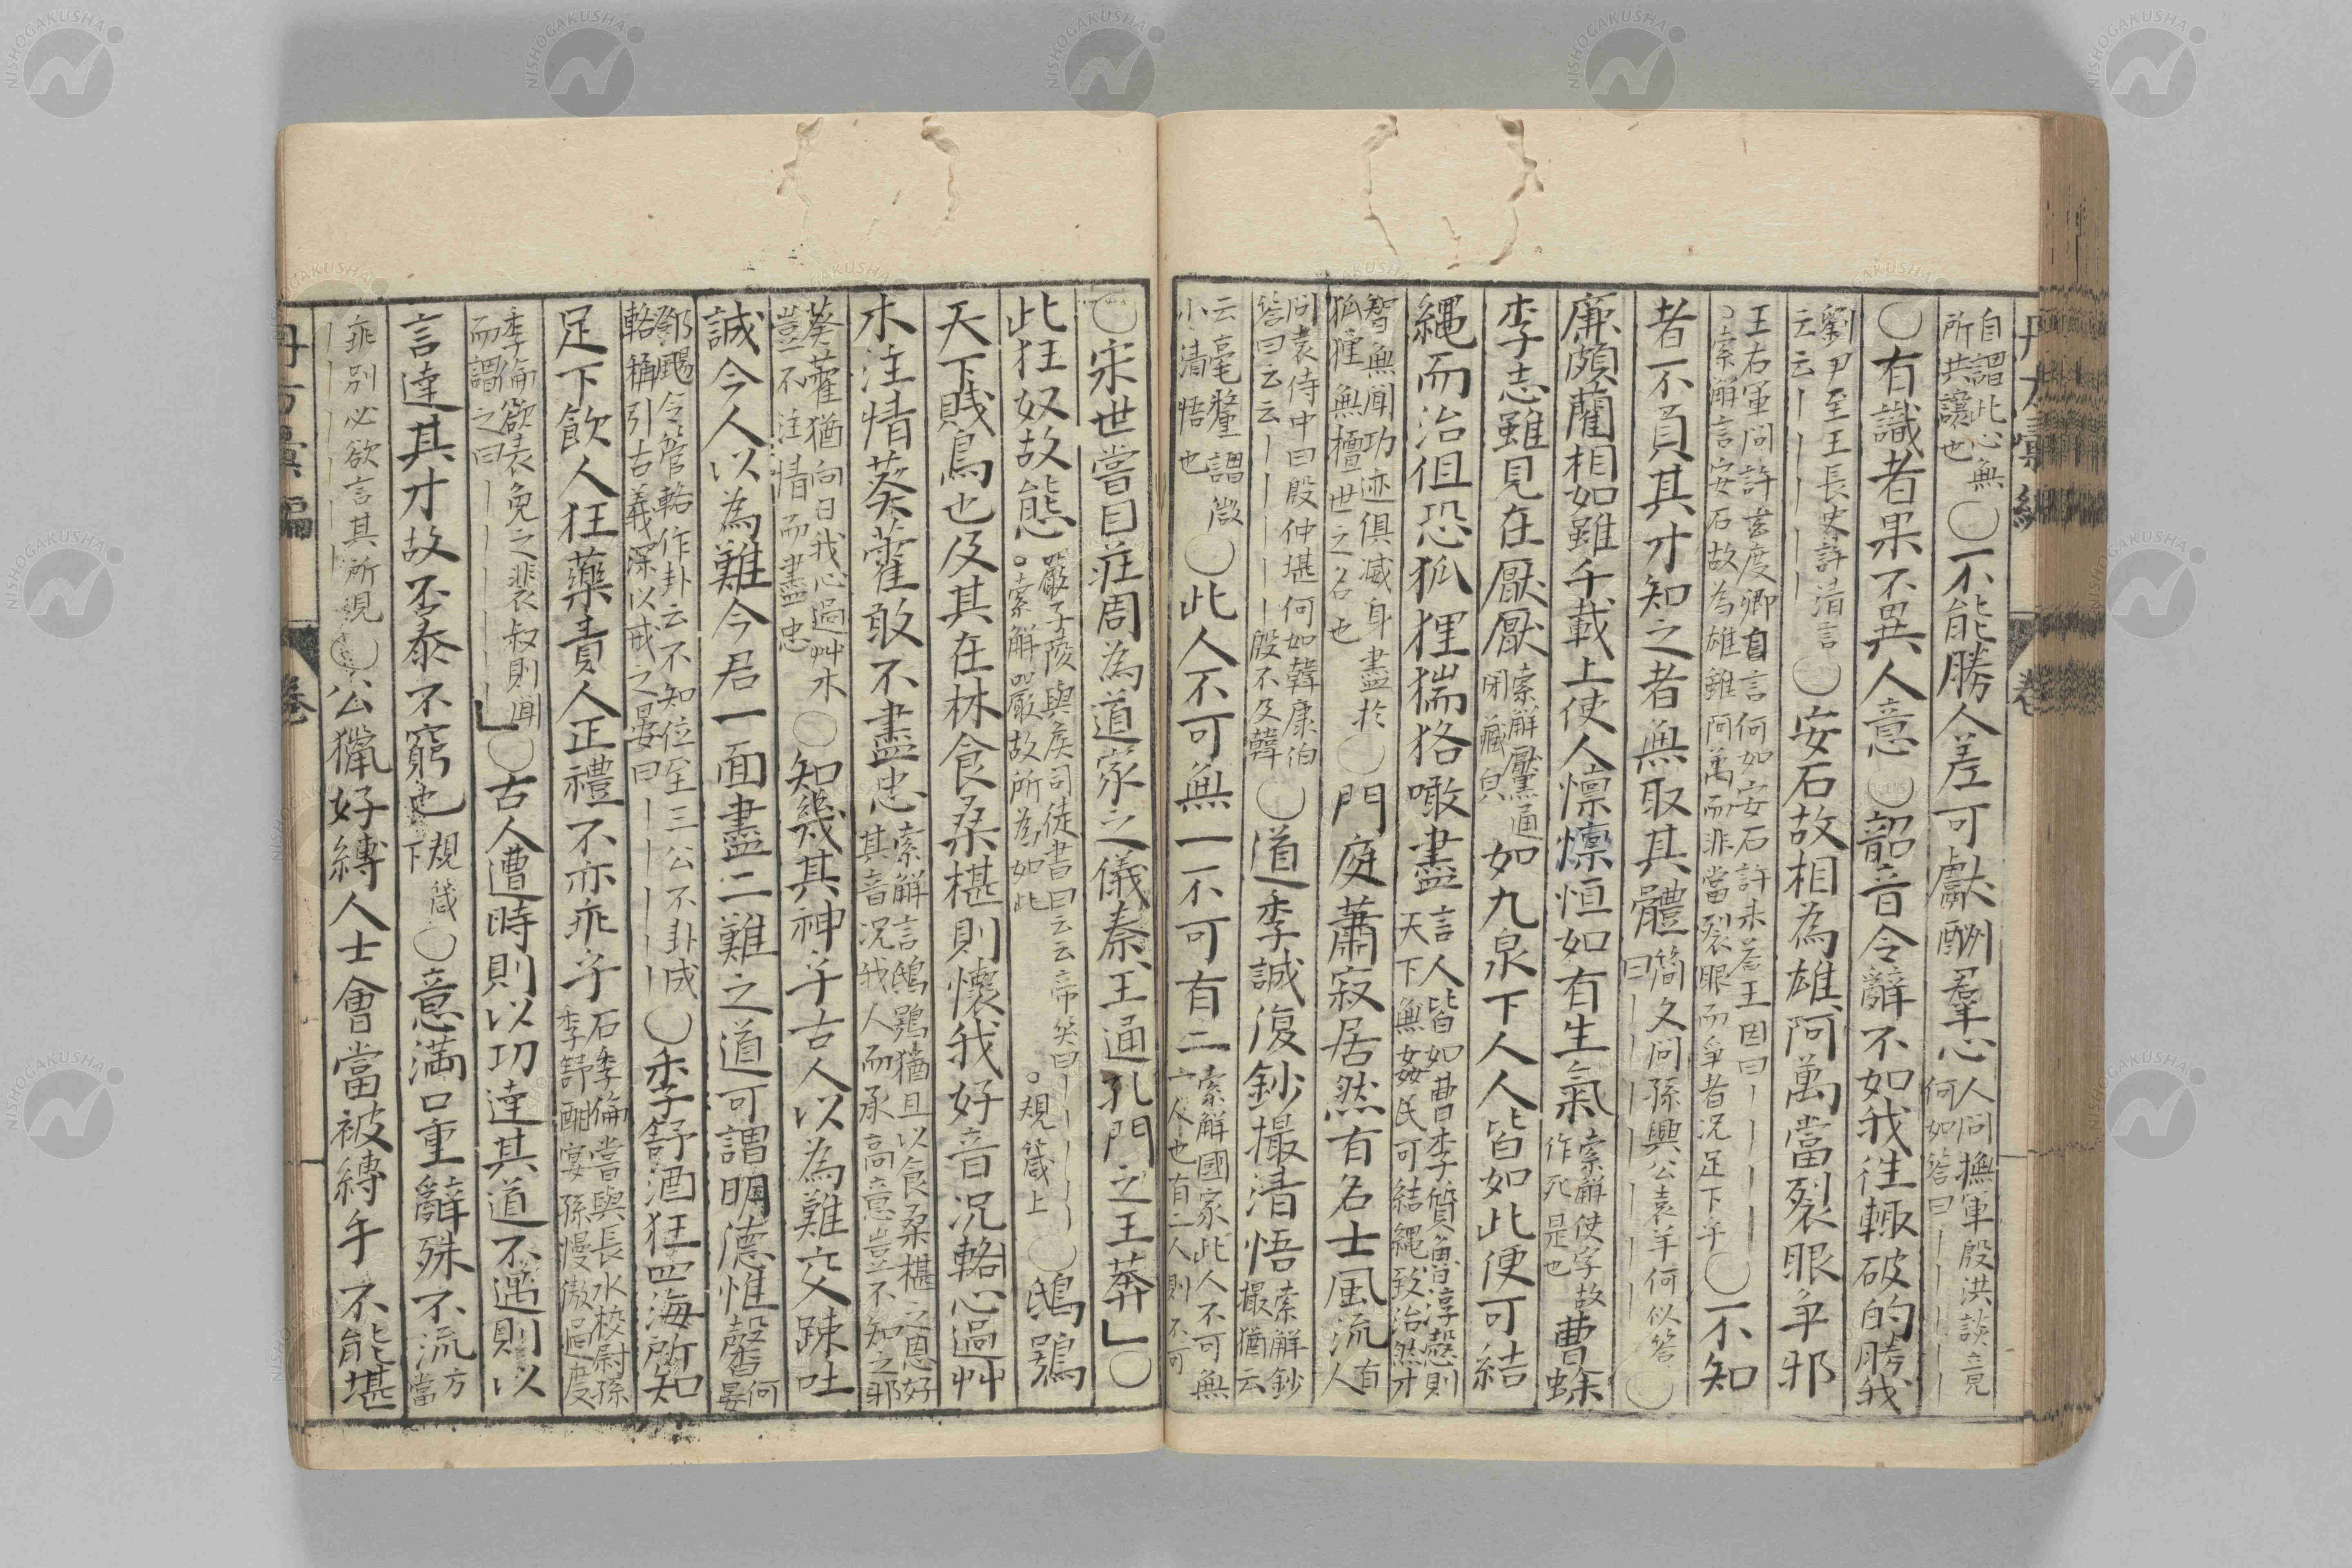 自謂此心無
所共讓也
〇不能勝人差可獻酬羣心
人問撫軍殷洪談竟
何如答曰
〇有識者果不異人意〇韶音令辭不如我往輙破的勝我
劉尹至王長史許清言
云云
〇安石故相為雄阿萬當裂眼爭邪
王右軍問許玄度卿自言何如安石許未荅王因曰
索解言安石故為雄雖阿萬而非當裂眼而爭者况足下乎
〇不知
者不負其才知之者無取其體
簡文問孫興公袁羊何似答
曰
〇
廉頗藺相如雖千載上使人懍懍恒如有生氣
索解使字故
作死是也
曹蜍
李志雖見在厭厭
索解壓通
閉藏皃
如九泉下人人皆如此便可結
繩而治但恐狐狸猯狢噉盡
言人皆如曹李質魯淳愨則
天下無姦民可結繩致治然才
智無聞功迹俱滅身盡於
狐狸無擅世之名也
〇門庭蕭寂居然有名士風流
有
人
問袁侍中曰殷仲堪何如韓康伯
答曰云云
殷不及韓
〇道季誠復鈔撮清悟
索解鈔
撮猶云
云毫釐謂微
小清悟也
〇此人不可無一不可有二
索解國家此人不可無
一人也有二人則不可
〇宋世嘗目荘周為道家之儀秦王通孔門之王莽」〇
此狂奴故態
嚴子陵與矦司徒書曰云云帝笑曰
索解嚴故所為如此
規箴上
〇鴟鴞
天下賤鳥也及其在林食桑椹則懷我好音况輅心過艸
木注情葵藿敢不盡忠
索解言鴟鴞猶且以食桑椹之恩好
其音况我人而承高意豈不知之邪
葵藿猶向日我心過艸木
豈不注情而盡忠
〇知幾其神乎古人以為難交踈吐
誠今人以為難今君一面盡二難之道可謂明德惟馨
何
晏
鄧颺令管輅作卦云不知位至三公不卦成
輅稱引古義深以戒之晏曰
〇季舒酒狂四海所知
足下飲人狂藥責人正禮不亦乖乎
石季倫嘗與長水校尉孫
季舒酣宴孫慢傲過度
季倫欲表免之裴叔則聞
而謂之曰
」〇古人遭時則以功達其道不遇則以
言達其才故否泰不窮也
規箴
下
〇意満口重辭殊不流
方
當
乖別必欲言其所現
〇公獵好縛人士會當被縛手不能堪